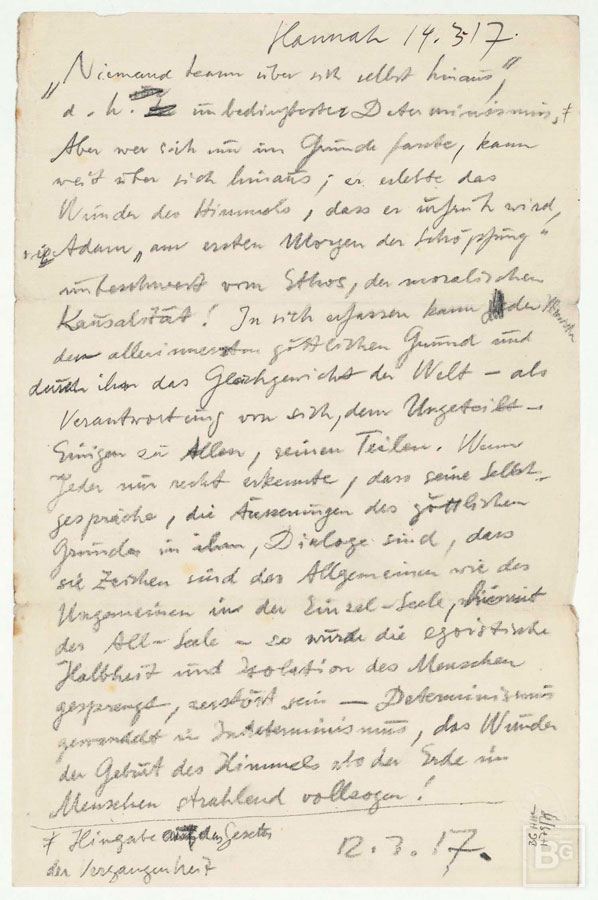 Hannah 14.3.17.
„Niemand kann über sich selbst hinaus“,
d. h. unbedingtester Determinismus, ‡
Aber wer sich nun im Grunde fasste, kann
weit über sich hinaus; er erlebte das
Wunder des Himmels, dass er urfrüh wird,
wie Adam „am ersten Morgen der Schöpfung“
unbeschwert vom Ethos, der moralischen
Kausalität! In sich erfassen kann jeder Mensch
den allerinnersten göttlichen Grund und
durch ihn das Gleichgewicht der Welt – als
Verantwortung von sich, dem Ungeteilt-
Einigen zu Allen, seinen Teilen. Wenn
Jeder nur recht erkennte, dass seine Selbst-
gespräche, die Äusserungen des göttlichen
Grundes in ihm, Dialoge sind, dass
sie Zeichen sind des Allgemeinen wie des
Ungemeinen in der Einzel-Seele,
der All-Seele – so würde die egoistische
Halbheit und Isolation des Menschen
gesprengt, zerstört sein — Determinismus
gewandelt in Indeterminismus, das Wunder
der Geburt des Himmels aus der Erde im
Menschen strahlend vollzogen!
‡ Hingabe an das Gesetz
der Vergangenheit
12.3.17.
BG